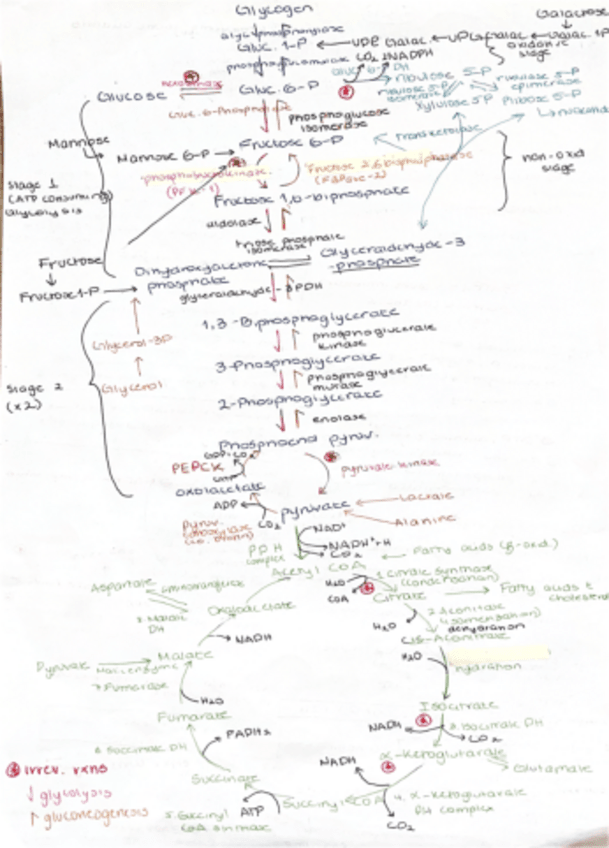 Glycogen
Galactose
glycogen phosphorylase
Gluc. 1-P ← UDP Galac. ← UDP Galac ← Galac 1P
phosphoglucomutase CO2 2NADPH
oxidative stage
Glucose
hexokinase
Gluc. 6-P
Gluc 6-P DH
ribulose 5-P
ribulose 5-P isomerase
ribulose 5-P epimerase
Gluc. 6-Phosphatase
phosphoglucose isomerase
Xylulose 5P
Ribose 5-P
Mannose
Mannose 6-P
Fructose 6-P
Transketolase
non-oxid stage
phosphofructokinase (PFK-1)
Fructose 2,6 bisphosphatase (FBPase-2)
Stage 1
(ATP consuming)
Glycolysis
Fructose 1,6-biphosphate
aldolase
triose phosphate isomerase
Fructose
Dihydroxyacetone phosphate
Glyceraldehyde-3-phosphate
Fructose 1-P
glyceraldehyde-3PDH
1,3-Biphosphoglycerate
Glycerol-3P
phosphoglycerate kinase
3-Phosphoglycerate
Stage 2
(x2)
Glycerol
phosphoglycerate mutase
2-Phosphoglycerate
enolase
Phosphoenol pyruv.
GDP+CO2
PEPCK
GTP
pyruvate kinase
oxoloacetate
ADP
pyruvate
Lactate
Pyruv. carboxylase
CO2
Alanine
NAD+
NADH+H
CO2
PDH complex
Fatty acids (β-oxid.)
Acetyl COA
H2O
1. citric synthase
(condensation)
COA
Citrate
Fatty acids & cholesterol
Aspartate
aminotransferase
Oxaloacetate
8. Malate DH
2. Aconitase
(isomerisation)
H2O
dehydration
Cis-Aconitate
NADH
H2O
hydration
Pyruvate
Malic enzyme
Malate
7. Fumarase
H2O
Isocitrate
Fumarate
NADH
3. Isocitrate DH
CO2
FADH2
6. Succinate DH
α-Ketoglutarate
NADH
Glutamate
irrev. rxns
Succinate
↓ glycolysis
ATP
Succinyl COA
4. α-Ketoglutarate DH complex
↑ gluconeogenesis
5. Succinyl CoA synthase
CO2